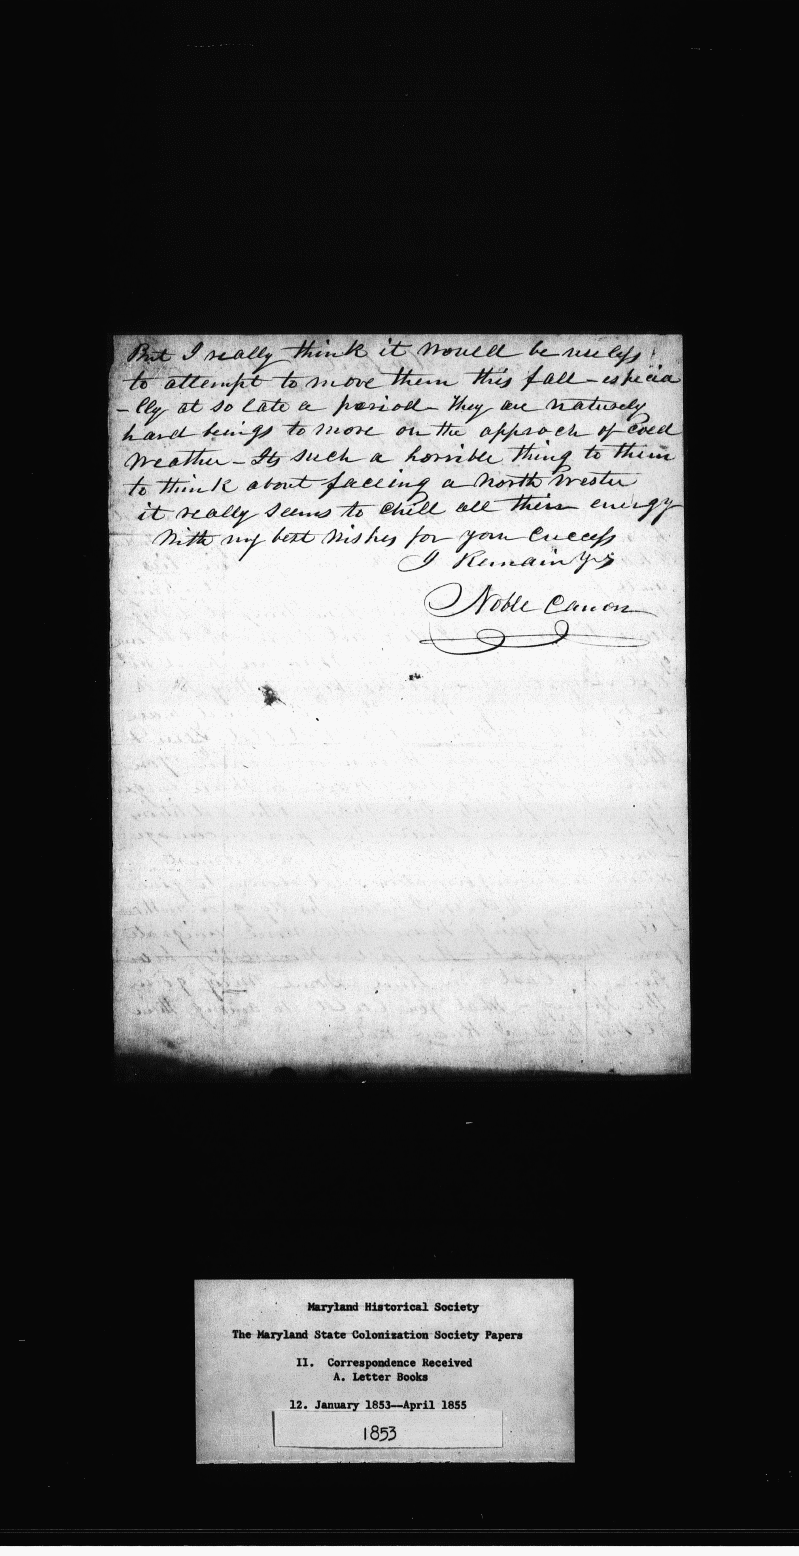 But I really think it would be useless
to attempt to move them this fall – especia
– lly at so late a period – They are naturely
hard beings to move on the approch of Coed
Weather – Its such a horrible thing to them
to think about faceing a North Wester
it really seems to chill all their energy
With my best Wishes for your Success
I Remain Yrs
Noble Canon
Maryland Historical Society
The Maryland State Colonization Society Papers
II. Correspondence Received
A. Letter Books
12. January 1853--April 1855
1853